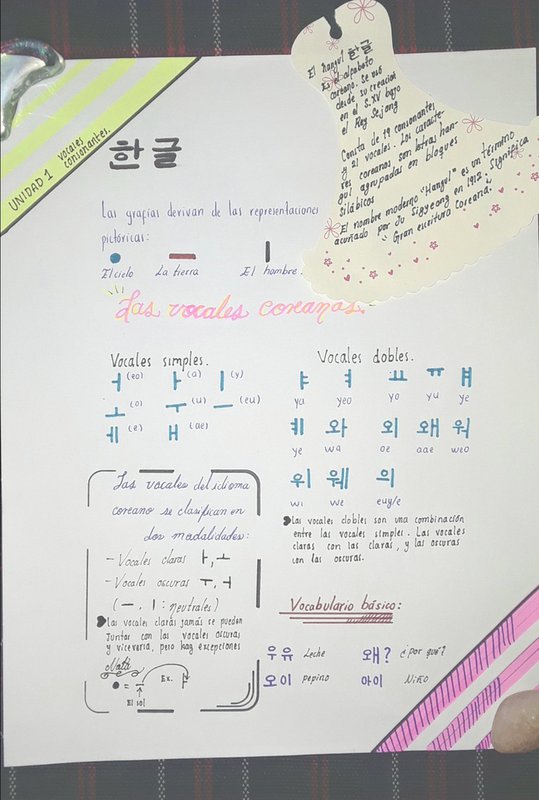 UNIDAD 1
vocales
consonantes.
한글
El hangul 한글
Es el alfabeto
coreano. Se usó
desde su creación
en el S.XV bajo
el Rey Sejong
Consta de 19 consonantes
y 21 vocales. Los caracte-
res coreanos son letras han-
gul agrupadas en bloques
silábicos
El nombre moderno "Hangul" es un término
acuñado por Ju Sigyeong en 1912. Significa
"Gran escritura coreana"
Las grafías derivan de las representaciones
pictóricas:
El cielo La tierra El hombre.
Las vocales coreanas.
Vocales simples.
ㅓ (eo) ㅏ (a) ㅣ (y)
ㅗ (o) ㅜ (u) ㅡ (eu)
ㅔ (e) ㅐ (ae)
Vocales dobles.
ㅑ ㅕ ㅛ ㅠ ㅒ
ya yeo yo yu ye
ㅖ 와 외 왜 워
ye wa oe aae weo
위 웨 의
wi we euy/e
Las vocales dobles son una combinación
entre las vocales simples. Las vocales
claras con las claras, y las oscuras
con las oscuras.
Las vocales del idioma
coreano se clasifican en
dos modalidades:
- Vocales claras ㅏ,ㅗ
- Vocales oscuras ㅜ,ㅓ
(ㅡ, ㅣ: neutrales)
Las vocales claras jamás se pueden
juntar con las vocales oscuras
y viceversa, pero hay excepciones
Ex. ㅏ
El sol
Vocabulario básico:
우유 Leche 왜? ¿por qué?
오이 pepino 아이 Niño